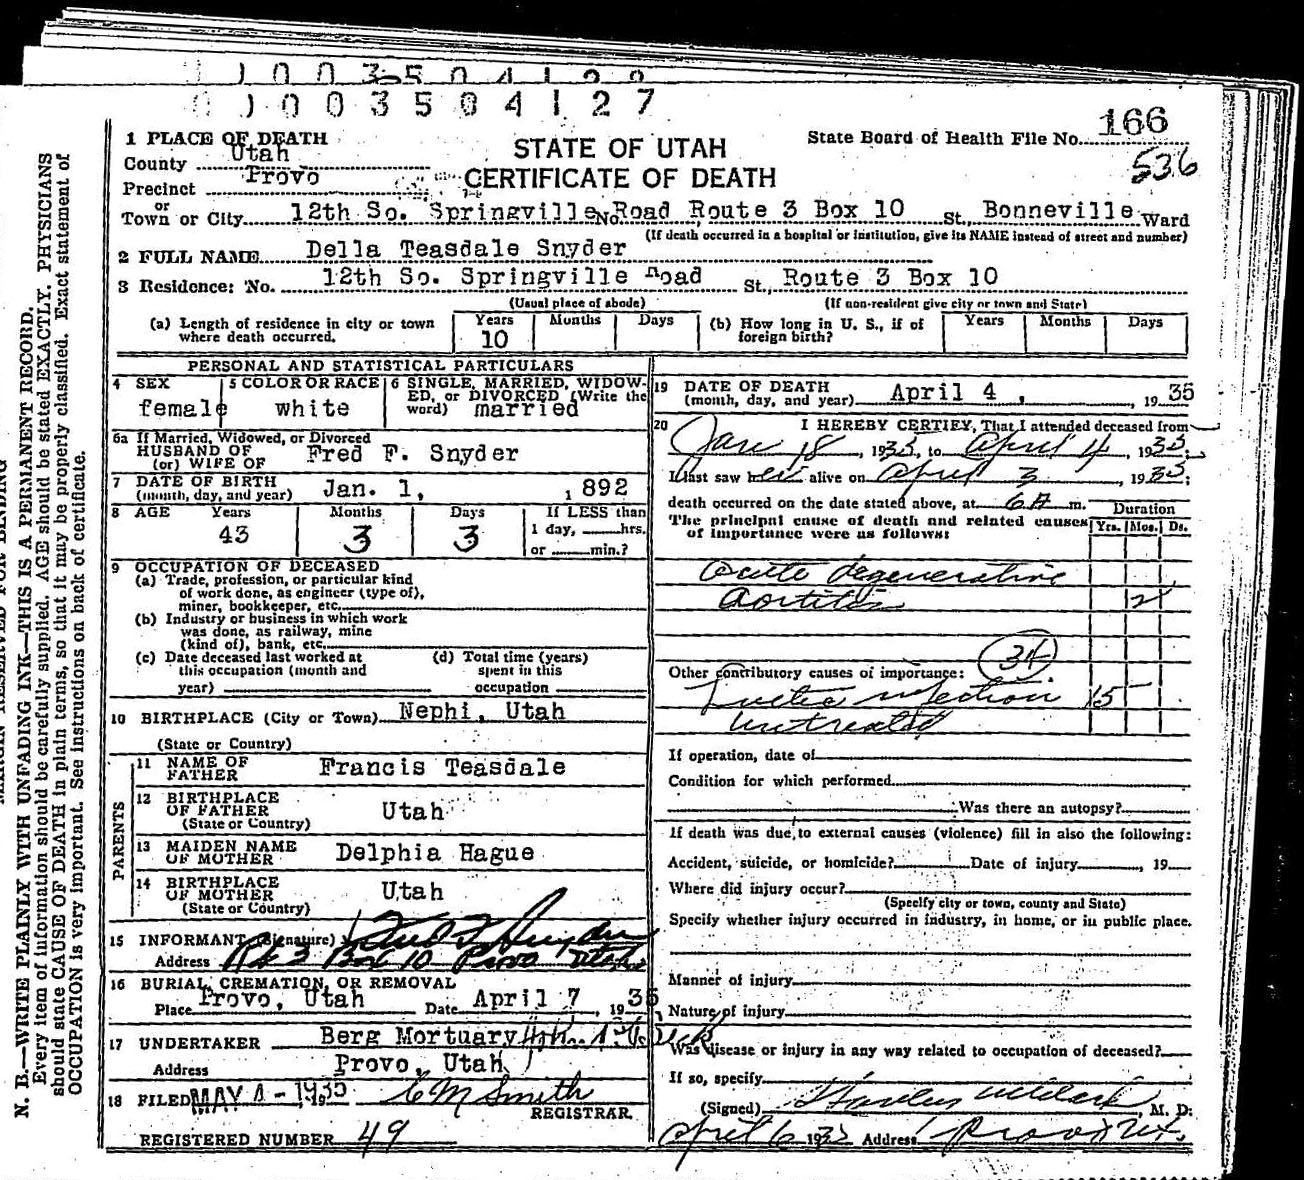 0 0 3 5 0 4 1 2
0 0 3 5 0 4 1 2 7
166
State Board of Health File No.
536
1 PLACE OF DEATH
STATE OF UTAH
County Utah
CERTIFICATE OF DEATH
Precinct Provo
or
Town or City 12th So. Springville No. Road Route 3 Box 10 St. Bonneville Ward
(If death occurred in a hospital or institution, give its NAME instead of street and number)
2 FULL NAME Della Teasdale Snyder
3 Residence: No. 12th So. Springville Road St. Route 3 Box 10
(Usual place of abode) (If non-resident give city or town and State)
(a) Length of residence in city or town where death occurred. Years 10 Months Days
(b) How long in U. S., if of foreign birth? Years Months Days
PERSONAL AND STATISTICAL PARTICULARS
4 SEX female
5 COLOR OR RACE white
6 SINGLE, MARRIED, WIDOW-
ED, or DIVORCED (Write the
word) married
6a If Married, Widowed, or Divorced
HUSBAND OF
(or) WIFE OF Fred F. Snyder
7 DATE OF BIRTH
(month, day, and year) Jan. 1, 1892
8 AGE Years 43 Months 3 Days 3
If LESS than
1 day, hrs.
or min.?
9 OCCUPATION OF DECEASED
(a) Trade, profession, or particular kind
of work done, as engineer (type of),
miner, bookkeeper, etc.
(b) Industry or business in which work
was done, as railway, mine
(kind of), bank, etc.
(c) Date deceased last worked at
this occupation (month and
year)
(d) Total time (years)
spent in this
occupation
10 BIRTHPLACE (City or Town) Nephi, Utah
(State or Country)
PARENTS
11 NAME OF
FATHER Francis Teasdale
12 BIRTHPLACE
OF FATHER Utah
(State or Country)
13 MAIDEN NAME
OF MOTHER Delphia Hague
14 BIRTHPLACE
OF MOTHER Utah
(State or Country)
15 INFORMANT (Signature) Fred F Snyder
Address Rt 3 Box 10 Provo Utah
16 BURIAL, CREMATION, OR REMOVAL
Place Provo, Utah Date April 7 1935
17 UNDERTAKER Berg Mortuary
Address Provo, Utah
18 FILED MAY 4 - 1935 C M Smith
REGISTRAR
REGISTERED NUMBER 49
19 DATE OF DEATH
(month, day, and year) April 4, 1935
20 I HEREBY CERTIFY, That I attended deceased from
Jan 18, 1935, to April 4, 1935,
I last saw her alive on April 3, 1935;
death occurred on the date stated above, at 6 A m.
The principal cause of death and related causes
of importance were as follows:
Duration
Yrs. Mos. Ds.
Acute degenerative
aortitis 2
34
Other contributory causes of importance:
Luetic infection 15
untreated
If operation, date of
Condition for which performed
Was there an autopsy?
If death was due to external causes (violence) fill in also the following:
Accident, suicide, or homicide? Date of injury 19
Where did injury occur?
(Specify city or town, county and State)
Specify whether injury occurred in industry, in home, or in public place.
Manner of injury
Nature of injury
Was disease or injury in any way related to occupation of deceased?
If so, specify
(Signed) M. D.
April 6 1935 Address Provo Ut.
N. B.—WRITE PLAINLY WITH UNFADING INK—THIS IS A PERMANENT RECORD.
Every item of information should be carefully supplied. AGE should be stated EXACTLY. PHYSICIANS
should state CAUSE OF DEATH in plain terms, so that it may be properly classified. Exact statement of
OCCUPATION is very important. See instructions on back of certificate.